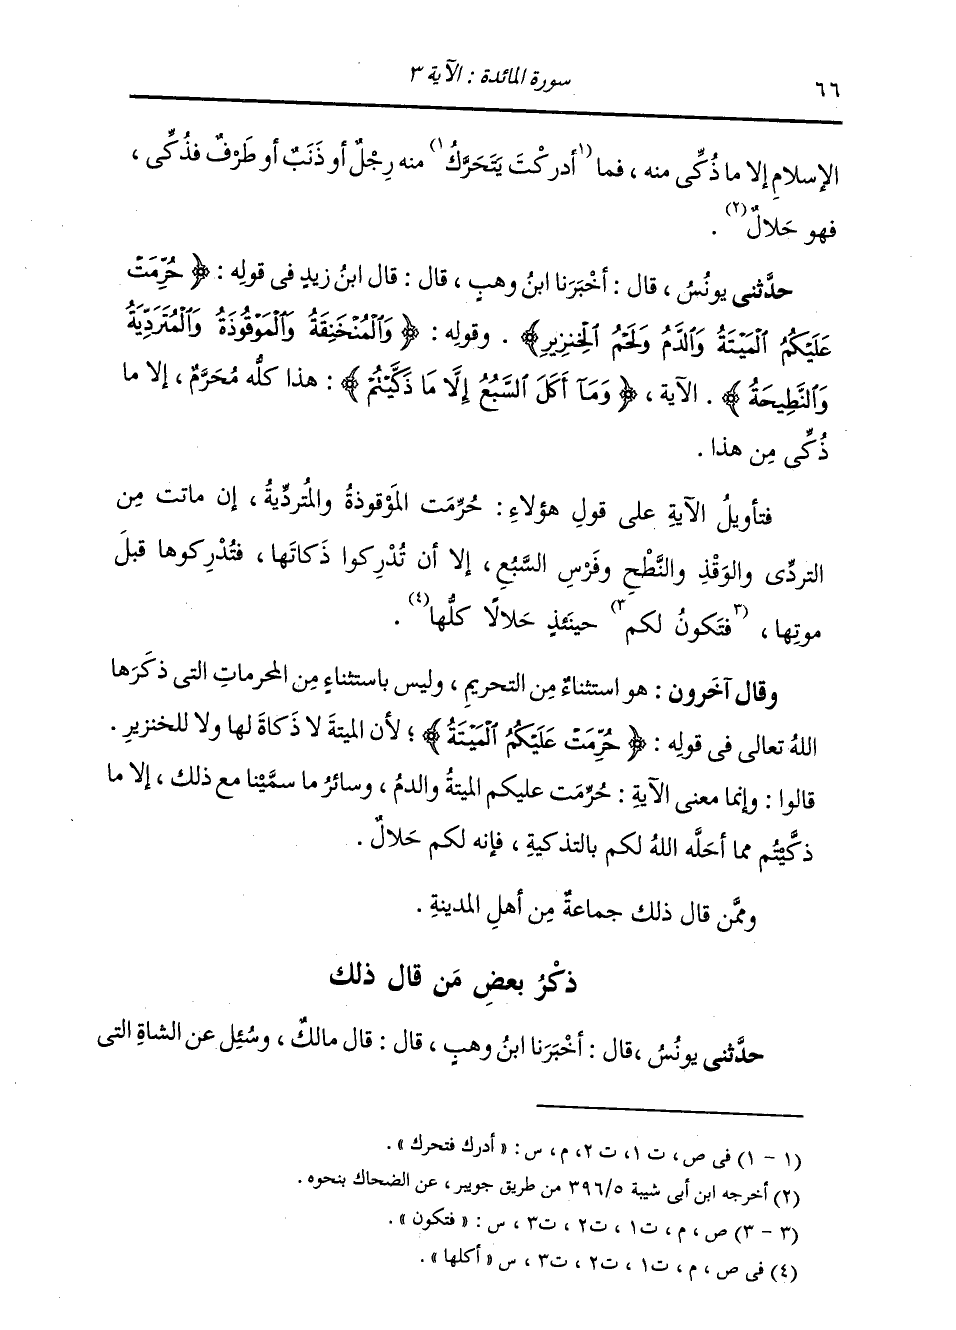 ٦٦
سورة المائدة : الآية ٣
الإسلامِ إلا ما ذُكِّى منه ، فما (١أدركْتَ يَتَحَرَّكُ١) منه رِجْلٌ أو ذَنَبٌ أو طَرْفٌ فذُكِّى ،
فهو حَلالٌ(٢) .
حدَّثنى يونُسُ ، قال : أخْبَرَنا ابنُ وهبٍ ، قال : قال ابنُ زيدٍ فى قولِه : ﴿ حُرِّمَتْ
عَلَيْكُمُ ٱلْمَيْتَةُ وَٱلدَّمُ وَلَحْمُ ٱلْخِنزِيرِ﴾ . وقولِه : ﴿ وَٱلْمُنْخَنِقَةُ وَٱلْمَوْقُوذَةُ وَٱلْمُتَرَدِّيَةُ
وَٱلنَّطِيحَةُ ﴾ . الآية ، ﴿ وَمَآ أَكَلَ ٱلسَّبُعُ إِلَّا مَا ذَكَّيْتُمْ ﴾ : هذا كلُّه مُحَرَّمٌ ، إلا ما
ذُكِّى مِن هذا .
فتأويلُ الآيةِ على قولِ هؤلاءِ : حُرِّمَت المَوْقوذةُ والمُتردِّيةُ ، إن ماتت مِن
التردِّى والوَقْذِ والنَّطْحِ وفَرْسِ السَّبُعِ ، إلا أن تُدْرِكوا ذَكاتَها ، فتُدْرِكوها قبلَ
موتِها ، (٣فتَكونُ لكم٣) حينَئذٍ حَلالًا كلُّها(٤) .
وقال آخَرون : هو استثناءٌ مِن التحريمِ ، وليس باستثناءٍ مِن المحرماتِ التى ذكَرَها
اللهُ تعالى فى قولِه : ﴿ حُرِّمَتْ عَلَيْكُمُ ٱلْمَيْتَةُ ﴾ ؛ لأن الميتةَ لا ذَكاةَ لها ولا للخنزيرِ .
قالوا : وإنما معنى الآيةِ : حُرِّمَت عليكم الميتةُ والدمُ ، وسائرُ ما سمَّيْنا مع ذلك ، إلا ما
ذكَّيْتُم مما أحَلَّه اللهُ لكم بالتذكيةِ ، فإنه لكم حَلالٌ .
وممَّن قال ذلك جماعةٌ مِن أهلِ المدينةِ .
ذكْرُ بعضِ مَن قال ذلك
حدَّثنى يونُسُ ،قال : أخْبَرَنا ابنُ وهبٍ ، قال : قال مالكٌ ، وسُئِل عن الشاةِ التى
(١ - ١) فى ص ، ت ١، ت ٢، م ، س : « أدرك فتحرك » .
(٢) أخرجه ابن أبى شيبة ٣٩٦/٥ من طريق جويبر ، عن الضحاك بنحوه .
(٣ - ٣) ص ، م ، ت١ ، ت٢ ، ت٣ ، س : « فتكون » .
(٤) فى ص ، م ، ت١ ، ت٢ ، ت٣ ، س « أكلها » .